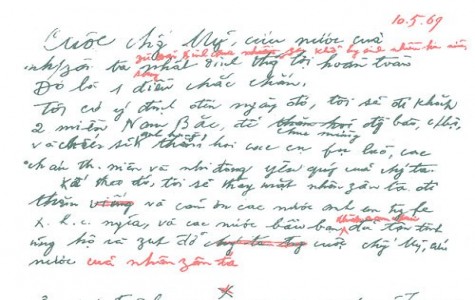 10.5.69
Cuộc chố' Mỹ, cứu nước của
khổ hy sinh nhiều hơn nữa,
song
nh/zân ta nhất định thg lợi hoàn toàn
Đó là 1 điều chắc chắn.
Tôi có ý định đến ngày đó, tôi sẽ đi khắp
2 miền Nam Bắc, để đg bào, c/bộ,
chúc mừng
và chiến sĩ anh hùng thăm hỏi các cụ fụ lão, các
cháu th. niên và nhi đồng yêu quý của chg ta.
Kế theo đó, tôi sẽ thay mặt nhân zân ta đi
thăm và cảm ơn các nước anh em tg fe
x. h. c. ngĩa, và các nước bầu bạn đã tận tình
ủng hộ và zúp đỡ cuộc chg Mỹ, cứu
nước của nhân zân ta